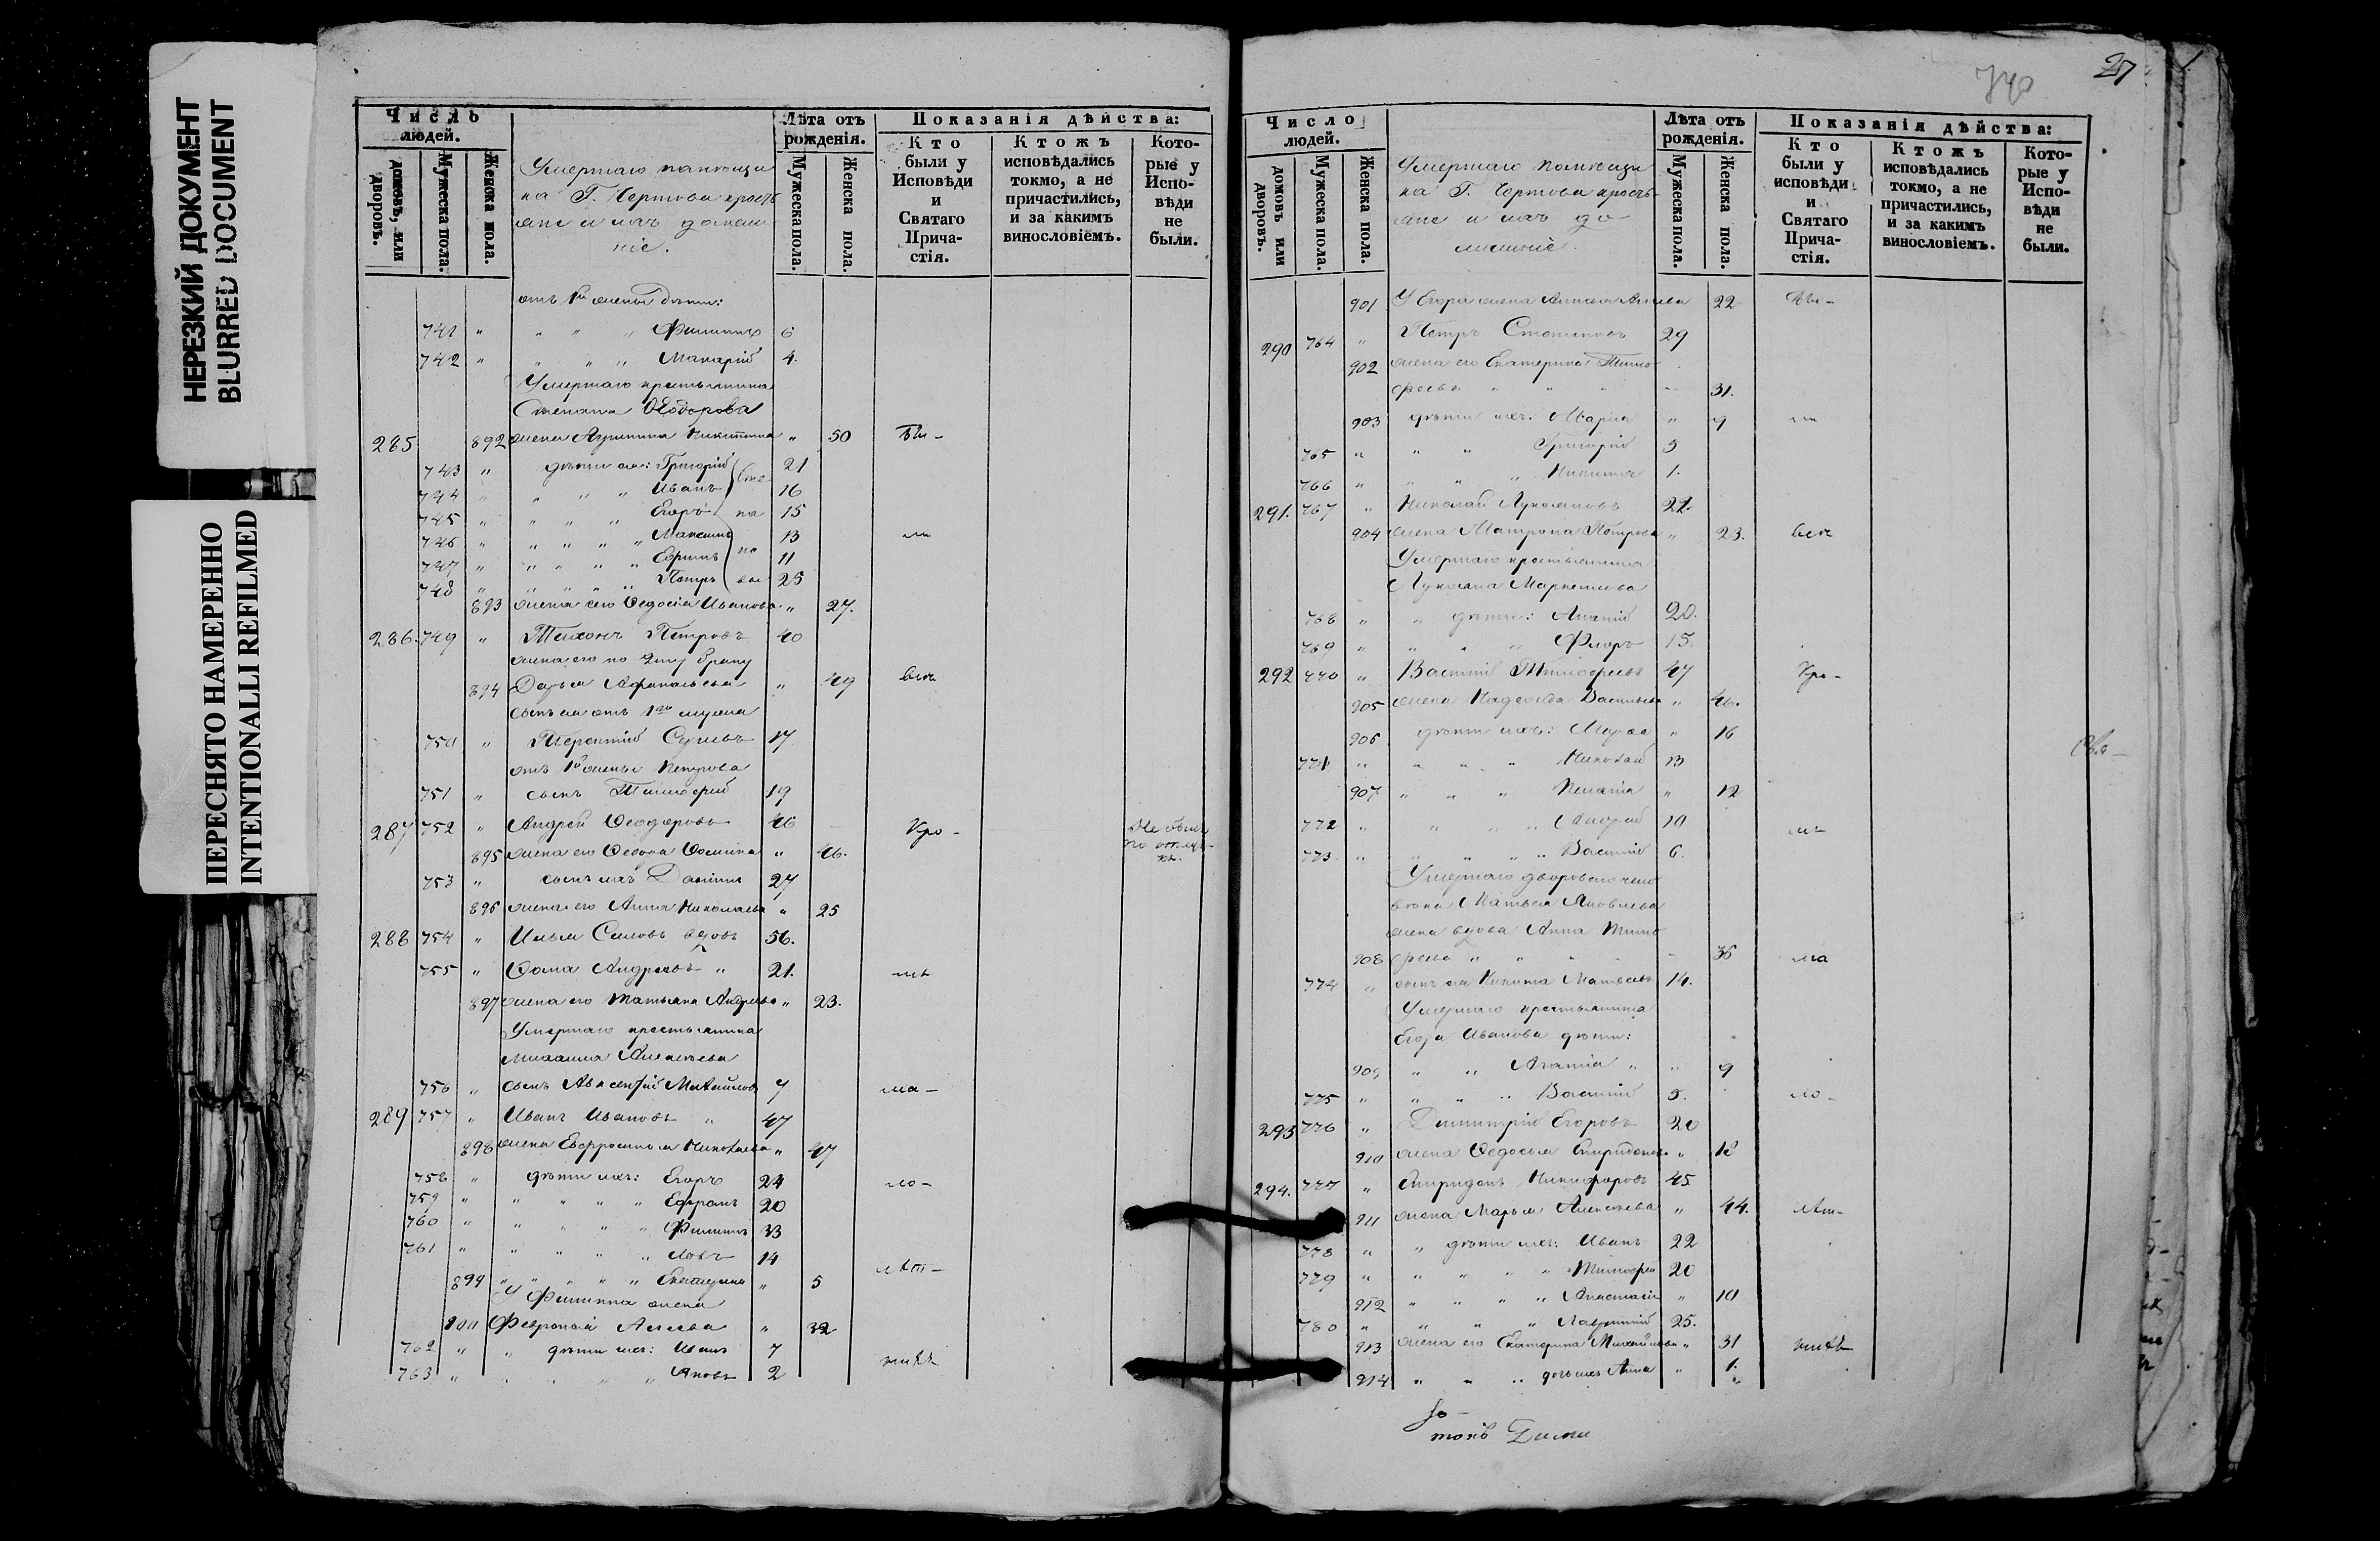 НЕРЕЗКИЙ ДОКУМЕНТ
BLURRED DOCUMENT
ПЕРЕСНЯТО НАМЕРЕННО
INTENTIONALLI REFILMED
Число людей.
домовъ, или дворовъ.
Мужеска пола.
Женска пола.
Умершаго помѣщи
ка Г. Чертова крестъ
яне и ихъ домаш
ніе.
Лѣта отъ рожденія.
Мужеска пола.
Женска пола.
Показанія дѣйства:
Кто были у Исповѣди и Святаго Прича-стія.
Ктожъ исповѣдались токмо, а не причастились, и за какимъ винословіемъ.
Кото-рые у Испо-вѣди не были.
отъ 1й жены дѣти:
741 " " " " Филиппъ 6
742 " " " " Макарій 4.
Умершаго крестьянина
Степана Ѳеодорова
285 892 жена Акулина Никитина " 50 Бы-
743 " дѣти ея: Григорій 21
744 " " " " Иванъ 16
745 " " " " Егоръ 15
746 " " " " " Максимъ 13
747 " " " " " Ефимъ 11
748 " " " " " Петръ 25
Сте
па
но
вы
ли
893 жена его Ѳедосія Иванова " 27.
286. 749 " Тихонъ Петровъ 40
жена его по 2му браку
894 Дарья Афанасьева " 49 всѣ
сынъ ея отъ 1го мужа
750 " Терентій 17
отъ 1й жены Петрова
751 " сынъ Тимофей 19
287 752 " Андрей Ѳеодоровъ 46 Кро-
Не былъ
по отлуч-
кѣ.
895 жена его Ѳекла Ѳомина " 46.
753 " сынъ ихъ Даніилъ 27
896 жена его Анна Николаева " 25
288 754 " Илья Силовъ вдовъ 56.
755 " Ѳома Андреевъ " 21. мѣ
897 жена его Татьяна Андреева " 23.
Умершаго крестьянина
Михаила Алексѣева
756 " сынъ Авксентій Михайловъ 7 ма-
289 757 " Иванъ Ивановъ " 47
898 жена Евфросинья Николаева " 47
758 " дѣти ихъ: Егоръ 24 ло-
759 " " " " " Ефремъ 20
760 " " " " " Филиппъ 33
761 " " " " " Іовъ 14
лѣт-
899 " " " " " Екатерина " 5
У Филиппа жена
900 Февронья " 32
762 " " дѣти ихъ: Иванъ 7
нихъ
763 " " " " " Яковъ 2
740
27
Число людей.
домовъ или дворовъ.
Мужеска пола.
Женска пола.
Умершаго помѣщи
ка Г. Чертова крестъ-
яне и ихъ до
машніе.
Лѣта отъ рожденія.
Мужеска пола.
Женска пола.
Показанія дѣйства:
Кто были у исповѣди и Святаго Прича-стія.
Ктожъ исповѣдались токмо, а не причастились, и за какимъ винословіемъ.
Кото-рые у Испо-вѣди не были.
901 У Егора жена 22 Бы-
290 764 " Петръ Степановъ 29
902 жена его Екатерина Тимо
фѣева " " " 31.
903 дѣти ихъ: Марія " 9 ли
765 " " " Григорій 3
766 " " " " Никита 1.
291. 767 " Николай Лукьяновъ 22.
904 жена Матрона Петрова " 23. всѣ
Умершаго крестьянина
Лукьяна
768 " " дѣти: Ананій 20.
769 " " " " Флоръ 15.
292 770 " Василій Тимофѣевъ 47 Кро-
905 жена Надежда Васильева " 46.
906 дѣти ихъ: Марѳа " 16
771 " " " " Николай 13
907 " " " Ксенія " 12
772 " " " " Андрей 10 мѣ
773 " " " " " Василій 6.
Умершаго двороваго чело
вѣка Матвѣя Яковлева
жена вдова Анна Тимо
908 фѣева " " " 36 ма
774 " сынъ ея Никита Матвѣевъ 14.
Умершаго крестьянина
Егора Иванова дѣти:
909 " " Агафія " " 9
775 " " " " Василій 5. ло-
293 776 " Димитрій Егоровъ 20
910 жена Ѳедосья Спиридонова " 18
294. 777 " Спиридонъ Никифоровъ 45.
911 жена Марья Алексѣева " 44. лѣт-
778 " " дѣти ихъ: Иванъ 22
779 " " " " " Тимофей 20
912 " " " " Анастасія " 10
780 " " " " Лаврентій 25.
913 жена его Екатерина Михайлова " 31 нихъ
914 " " " дочь ихъ Анна " 1.